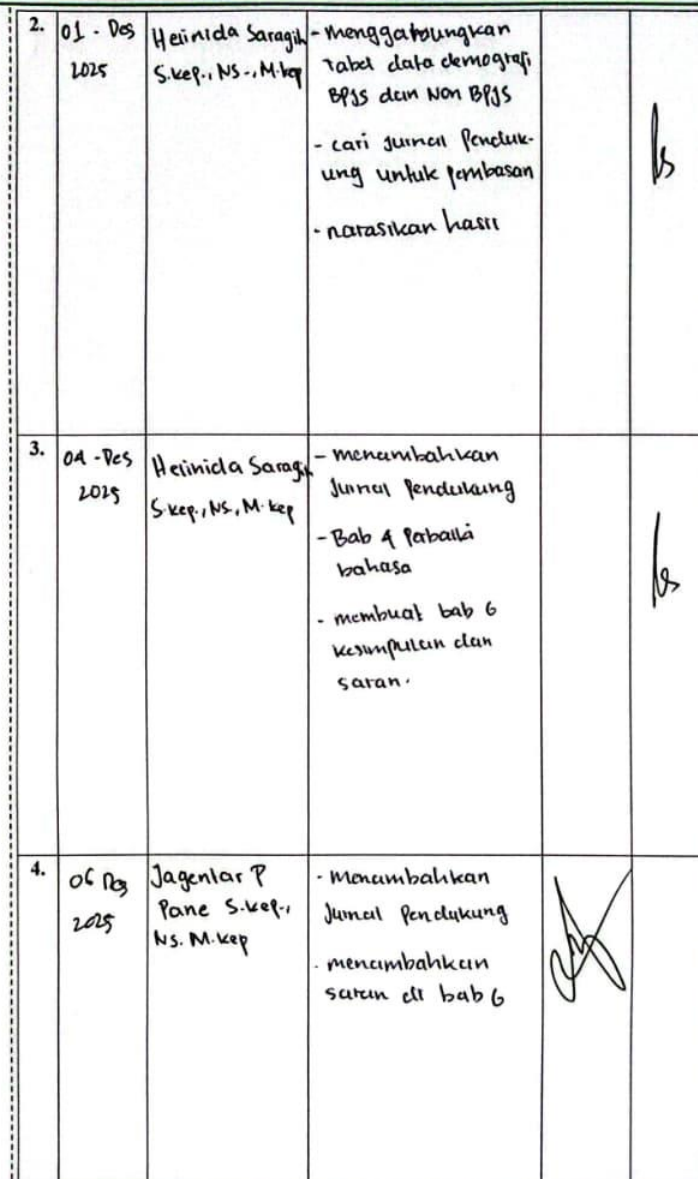 2.
01 - Des
2025
Herinida Saragih
S.kep., NS., M.kep
- Menggabungkan
Tabel data demografi
BPJS dan Non BPJS
- cari Jurnal Penduk-
ung untuk pembasan
- narasikan hasil
3.
04 - Des
2025
Herinida Saragih
S.kep., NS., M.kep
- menambahkan
Jurnal Pendukung
- Bab 4 Perbaiki
bahasa
- membuat bab 6
kesimpulan dan
saran.
4.
06 Des
2025
Jagentar P
Pane S.kep.,
NS. M.kep
- Menambahkan
Jurnal Pendukung
- menambahkan
saran di bab 6